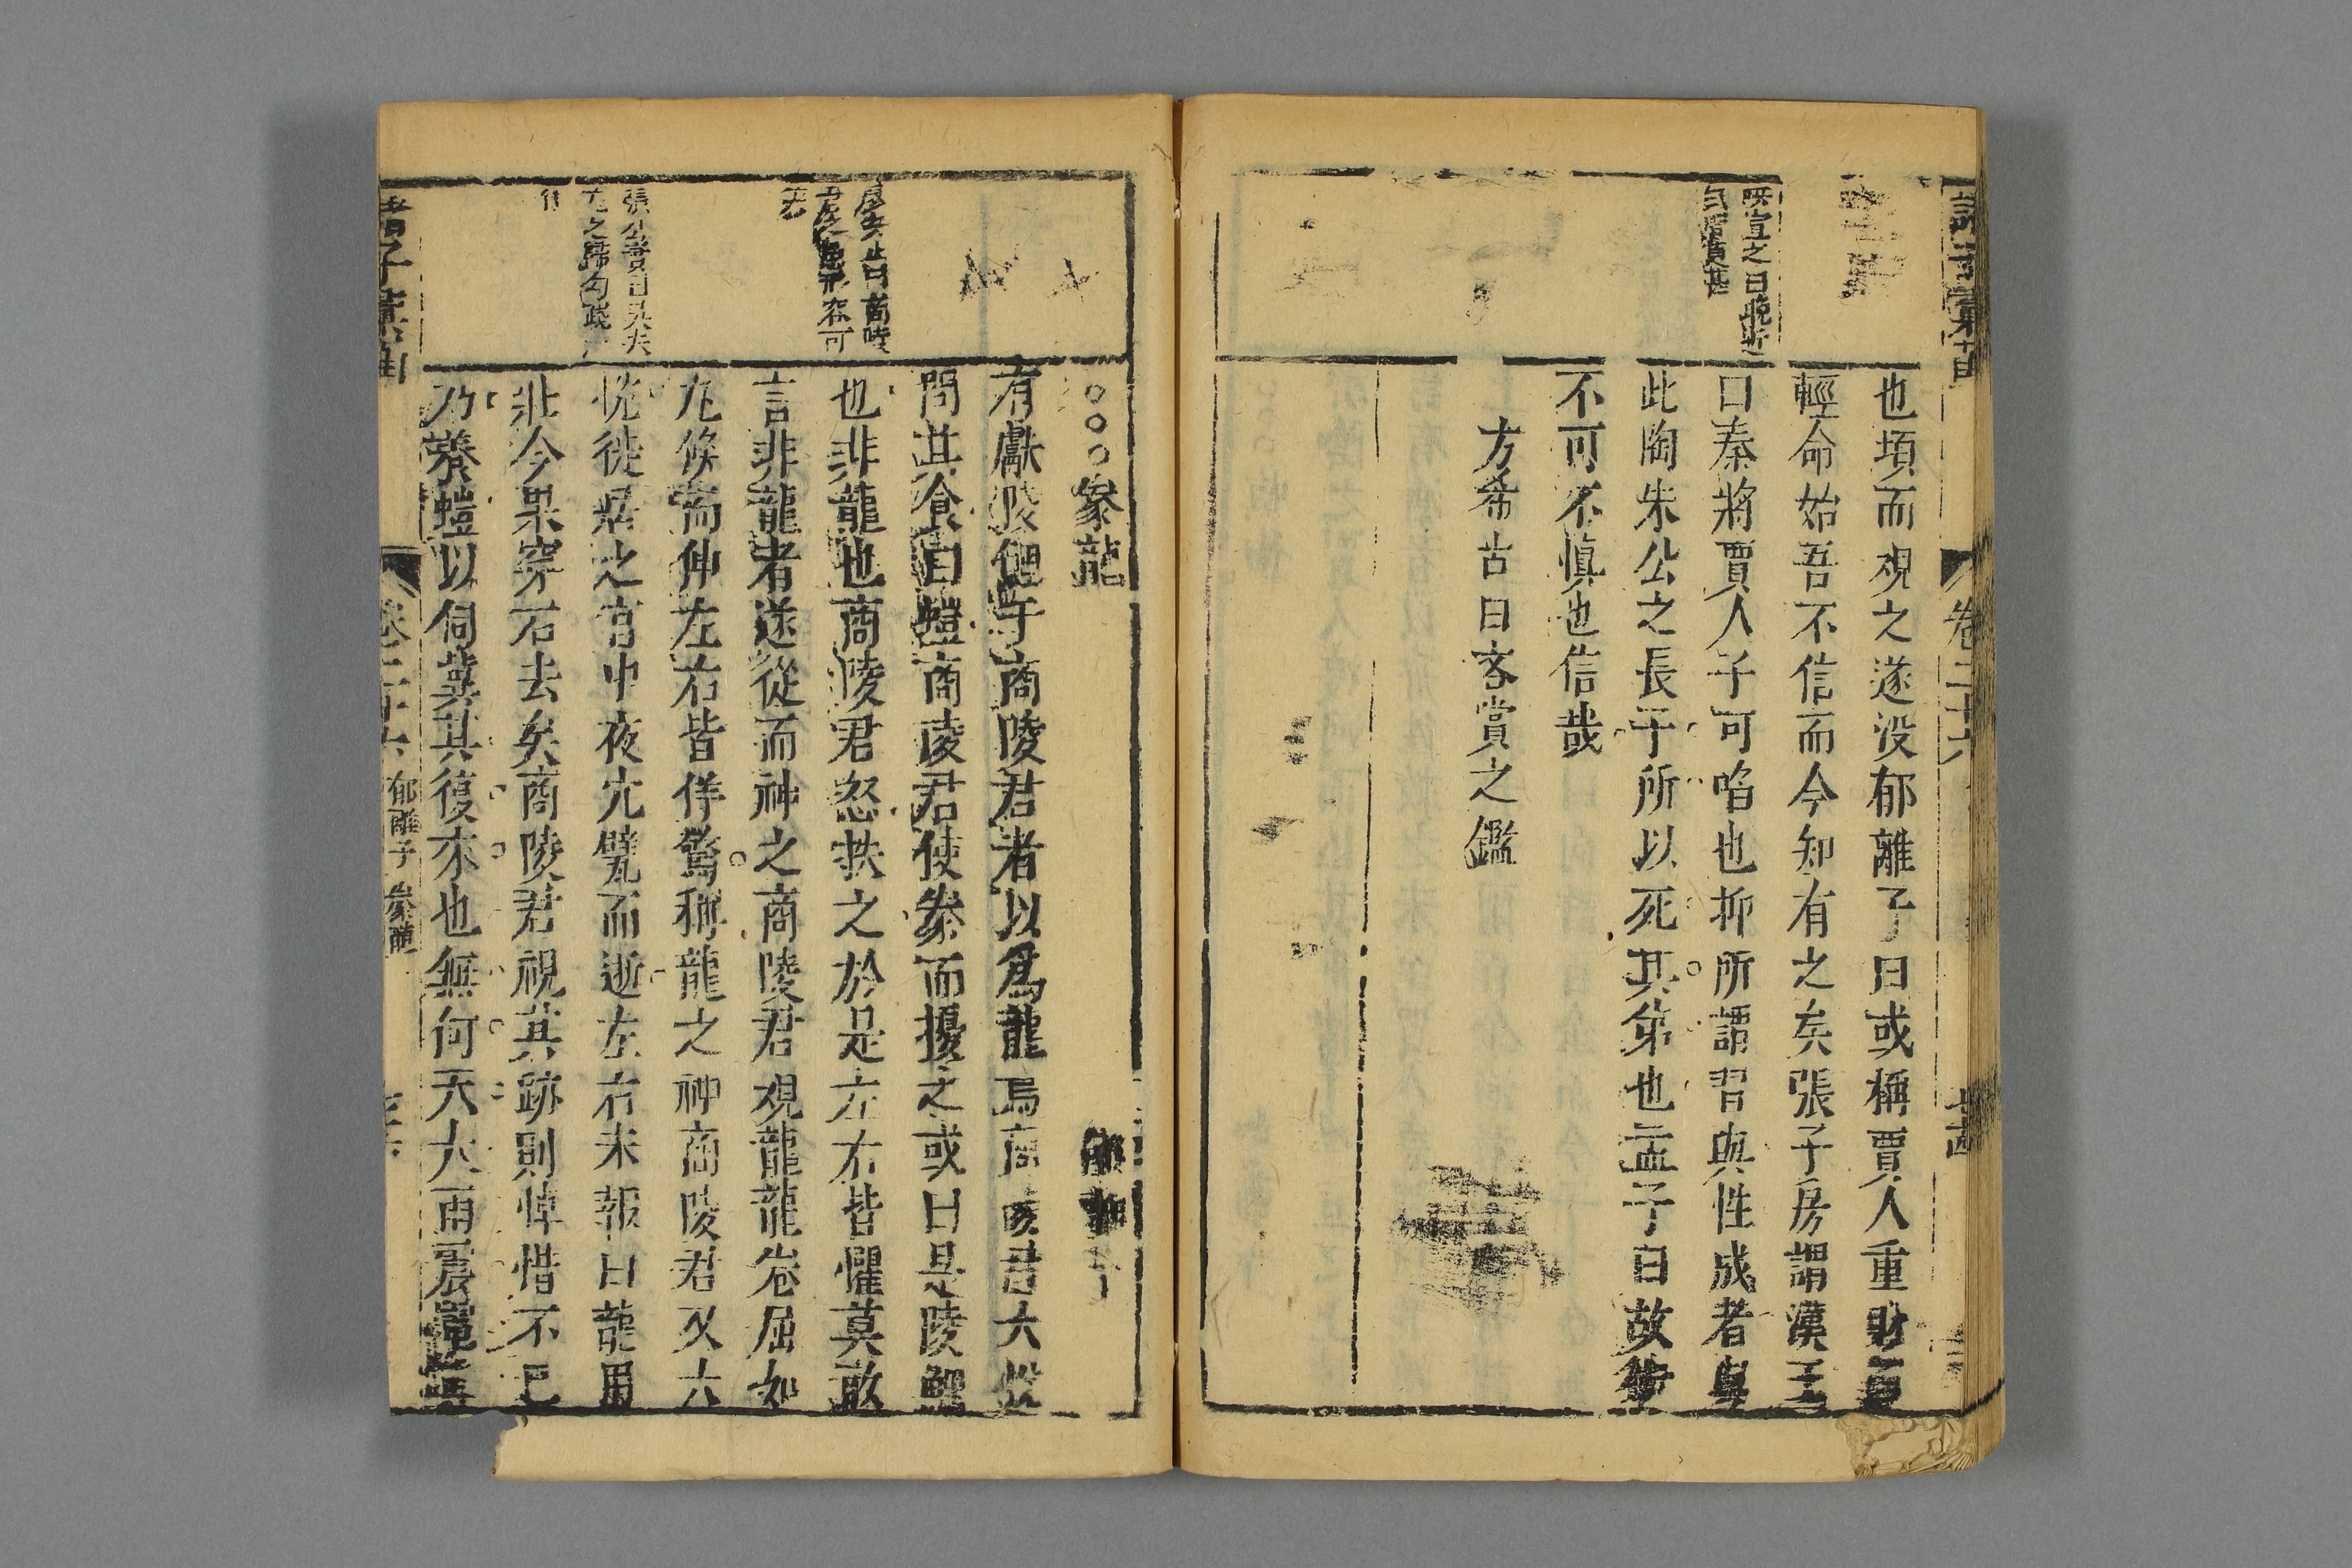 也頃而視之遂没郁離子曰或稱賈人重財
輕命始吾不信而今知有之矣張子房謂漢王
曰秦將賈人子可啗也抑所謂習與性成者與
此陶朱公之長子所以死其弟也孟子曰故術
不可不慎也信哉
方希古曰客賞之鑑
卷二十六
象龍
有獻陵鯉于商陵君者以爲龍焉商陵君大悅
問其食曰螘商陵君使豢而擾之或曰是陵鯉
也非龍也商陵君怒抶之於是左右皆懼莫敢
言非龍者遂從而神之商陵君觀龍龍卷屈如
丸倐而伸左右皆佯驚稱龍之神商陵君又大
悅徙居之宮中夜穴甓而逝左右未報曰龍用
壯今果穿石去矣商陵君視其跡則悼惜不已
乃養螘以伺冀其復來也無何天大雨震
郁離子